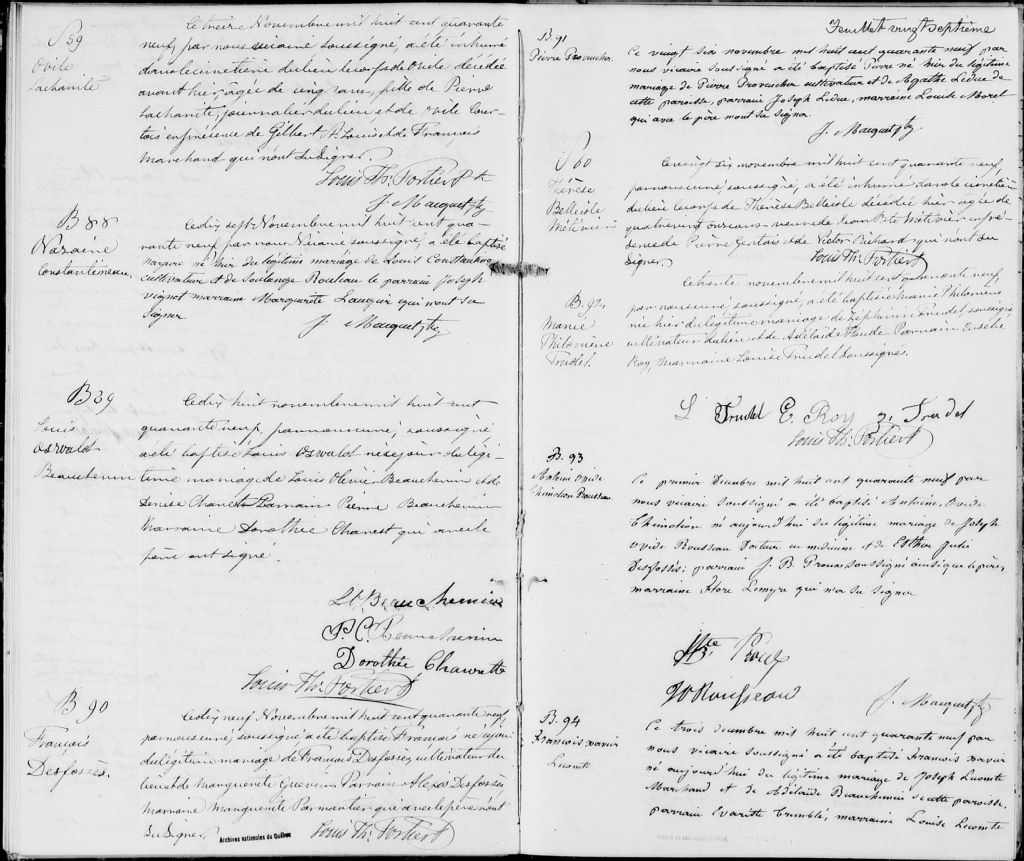 S 59
Ovile
Lachanité
Le treize Novembre mil huit cent quarante
neuf, par nous vicaire soussigné, a été inhumé
dans le cimetière du lieu le corps de Ovile décédée
avant hier agée de cinq ans, fille de Pierre
Lachanité, journalier du lieu et de Ovile Cour-
tois en présence de Gilbert St Louis et de François
Marchand qui n'ont su signer.
Louis Th: Fortier Ptr
J. Mauquet, ptre
B 88
Nazaire
Constantineau
Ce dix sept Novembre mil huit cent qua-
rante neuf par nous Vicaire soussigné, a été baptisé
Nazaire né hier du légitime mariage de Louis Constantineau
cultivateur et de Soulange Rouleau le parrain Joseph
vignot marraine Marguerite qui n'ont su
signer
J. Mauquet, ptre
B 89
Louis
Oswald
Beauchemin
Ce dix huit novembre mil huit cent
quarante neuf, par nous curé, soussigné
a été baptisé Louis Oswald né ce jour du légi-
time mariage de Louis Olivier Beauchemin et de
Denise Charest Parrain Pierre Beauchemin
Marraine Dorothée Charest qui avec le
père ont signé.
L O Beauchemin
P. C. Beauchemin
Dorothée Charette
Louis Th: Fortier Ptr
B 90
François
Desfossés.
Ce dix neuf Novembre mil huit cent quarante neuf,
par nous curé, soussigné a été baptisé François né ce jour
du légitime mariage de François Desfossés cultivateur du
lieu et de Marguerite Parrain Alexis Desfossés
marraine Marguerite Parmantier qui avec le père n'ont
su signer
Louis Th: Fortier Ptr
Archives nationales du Québec
Feuillet vingt septième
B 91
Pierre Provencher
Ce vingt six novembre mil huit cent quarante neuf par
nous vicaire soussigné a été baptisé Pierre né hier du légitime
mariage de Pierre Provencher cultivateur et de Agathe Leduc de
cette paroisse, parrain Joseph Leduc, marraine Louise Morel
qui avec le père n'ont su signer
J. Mauquet, ptre
S 60
Thérèse
Belleisle
Métivier
Le vingt six novembre mil huit cent quarante neuf,
par nous curé, soussigné, a été inhumé dans le cimetière
du lieu le corps de Thérèse Belleisle décédée hier agée de
quatre vingt onze ans veuve de Jean Bte Métivier en pré-
sence de Pierre Gervais et de Victor Richard qui n'ont su
signer
Louis Th: Fortier Ptr
B. 92
Marie
Philomène
Trudel.
Le trente novembre mil huit cent quarante neuf,
par nous curé, soussigné, a été baptisée Marie Philomène
née hier du légitime mariage de Zéphirin Trudel, soussigné
cultivateur du lieu et de Adelaïde Houde Parrain Eusèbe
Roy, Marraine Louise Trudel soussignés.
L Trudel E. Roy Z. Trudel
Louis Th: Fortier Ptr
B. 93
Antoine Ovide
Chimotion Rousseau
Ce premier Décembre mil huit cent quarante neuf par
nous vicaire soussigné a été baptisé Antoine Ovide
Chimotion né aujourd'hui du légitime mariage de Joseph
Ovide Rousseau Docteur en médecine et de Esther Julie
Desfossés; parrain J. B. Proux soussigné ainsi que le père,
marraine Flore Lemyre qui n'a su signer
J Bte Proux
J O Rousseau
J. Mauquet, ptre
B. 94
François xavier
Lecomte
Ce trois décembre mil huit cent quarante neuf par
nous vicaire soussigné a été baptisé François xavier
né aujourd'hui du légitime mariage de Joseph Lecomte
Marchand et de Adélaïde Beauchemin de cette paroisse,
parrain Evariste Tremblé, marraine Louise Lecomte